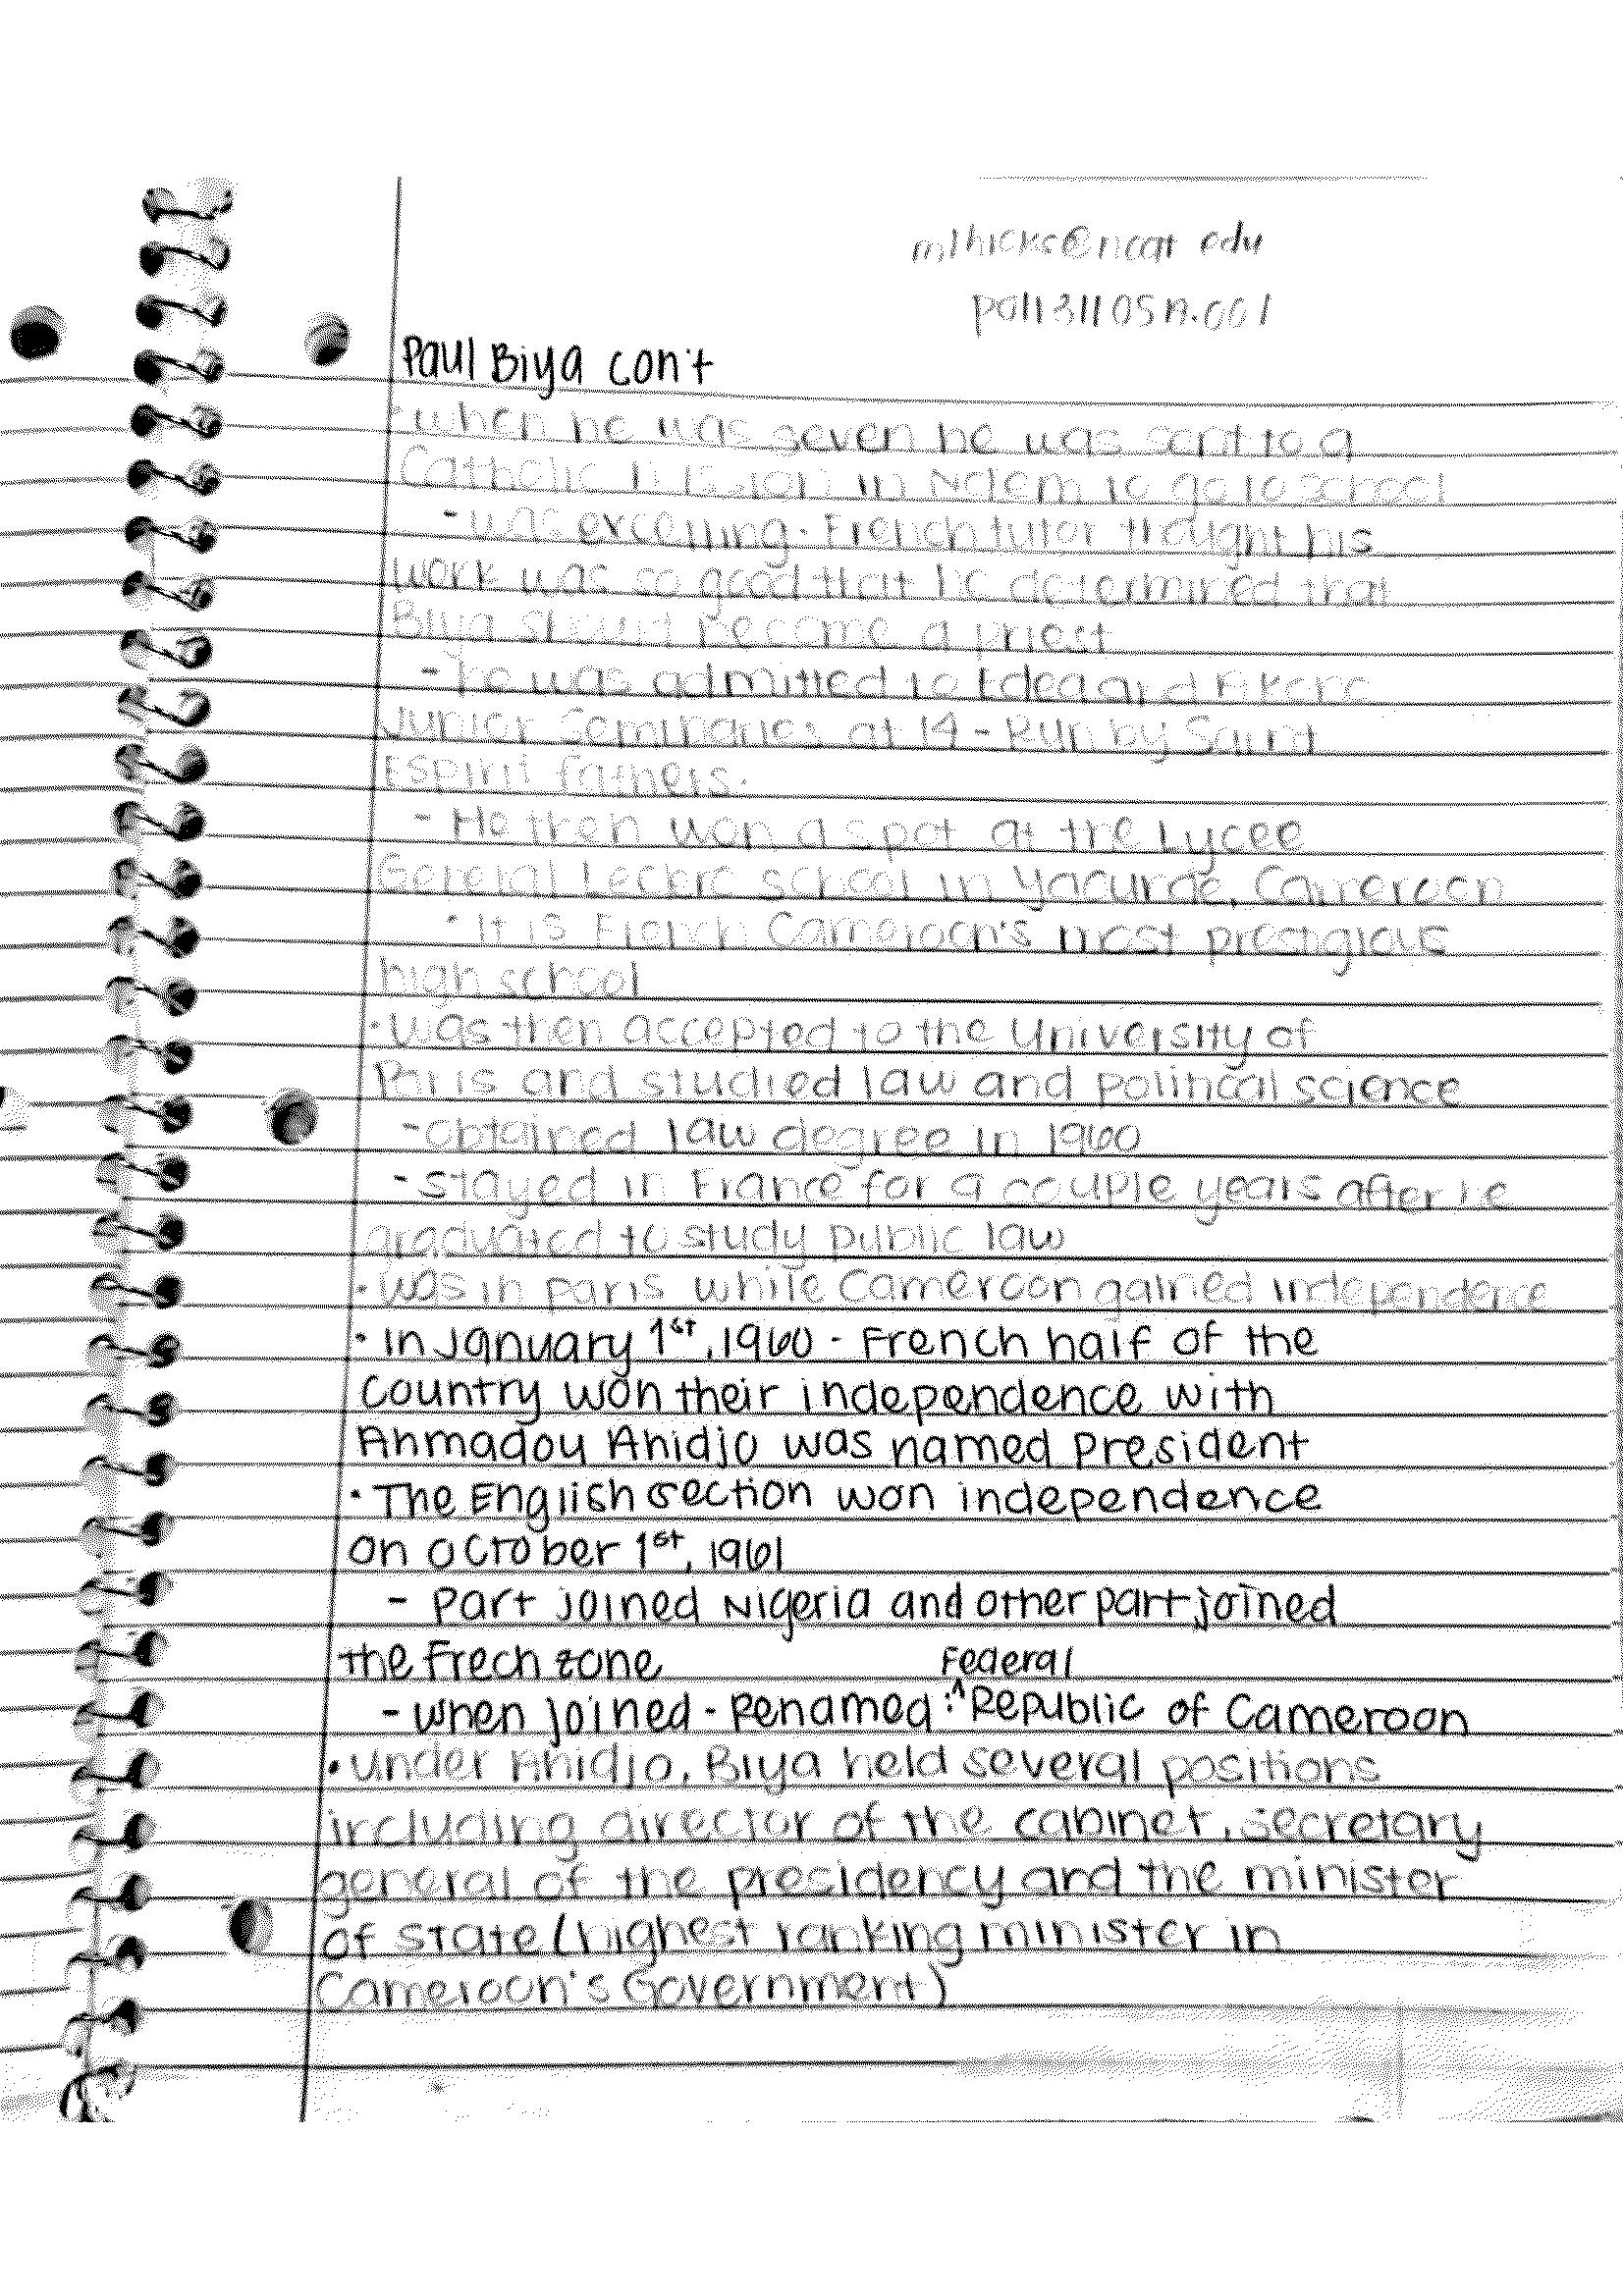 mlhicks@ncat.edu
Paul Biya con't
· when he was seven he was sent to a
Catholic mission in Ndem to go to school
- was excelling. French tutor thought his
work was so good that he determined that
Biya should become a priest
- he was admitted to Edea and Akono
Junior Seminaries at 14 - Run by Saint
Espirit fathers.
- He then won a spot at the Lycee
General Leclerc school in Yaounde, Cameroon
· It is French Cameroon's most prestigious
high school
· was then accepted to the University of
Paris and studied law and political science
- obtained law degree in 1960
- stayed in France for a couple years after he
graduated to study public law
· was in paris while Cameroon gained independence
· in January 1st, 1960 - French half of the
Country won their independence with
Ahmadou Ahidjo was named president
· The English section won independence
on October 1st, 1961
- part joined Nigeria and other part joined
the Frech zone
- when joined - Renamed: Federal Republic of Cameroon
· under Ahidjo, Biya held several positions
including director of the cabinet, secretary
general of the presidency and the minister
of state (highest ranking minister in
Cameroon's Government)